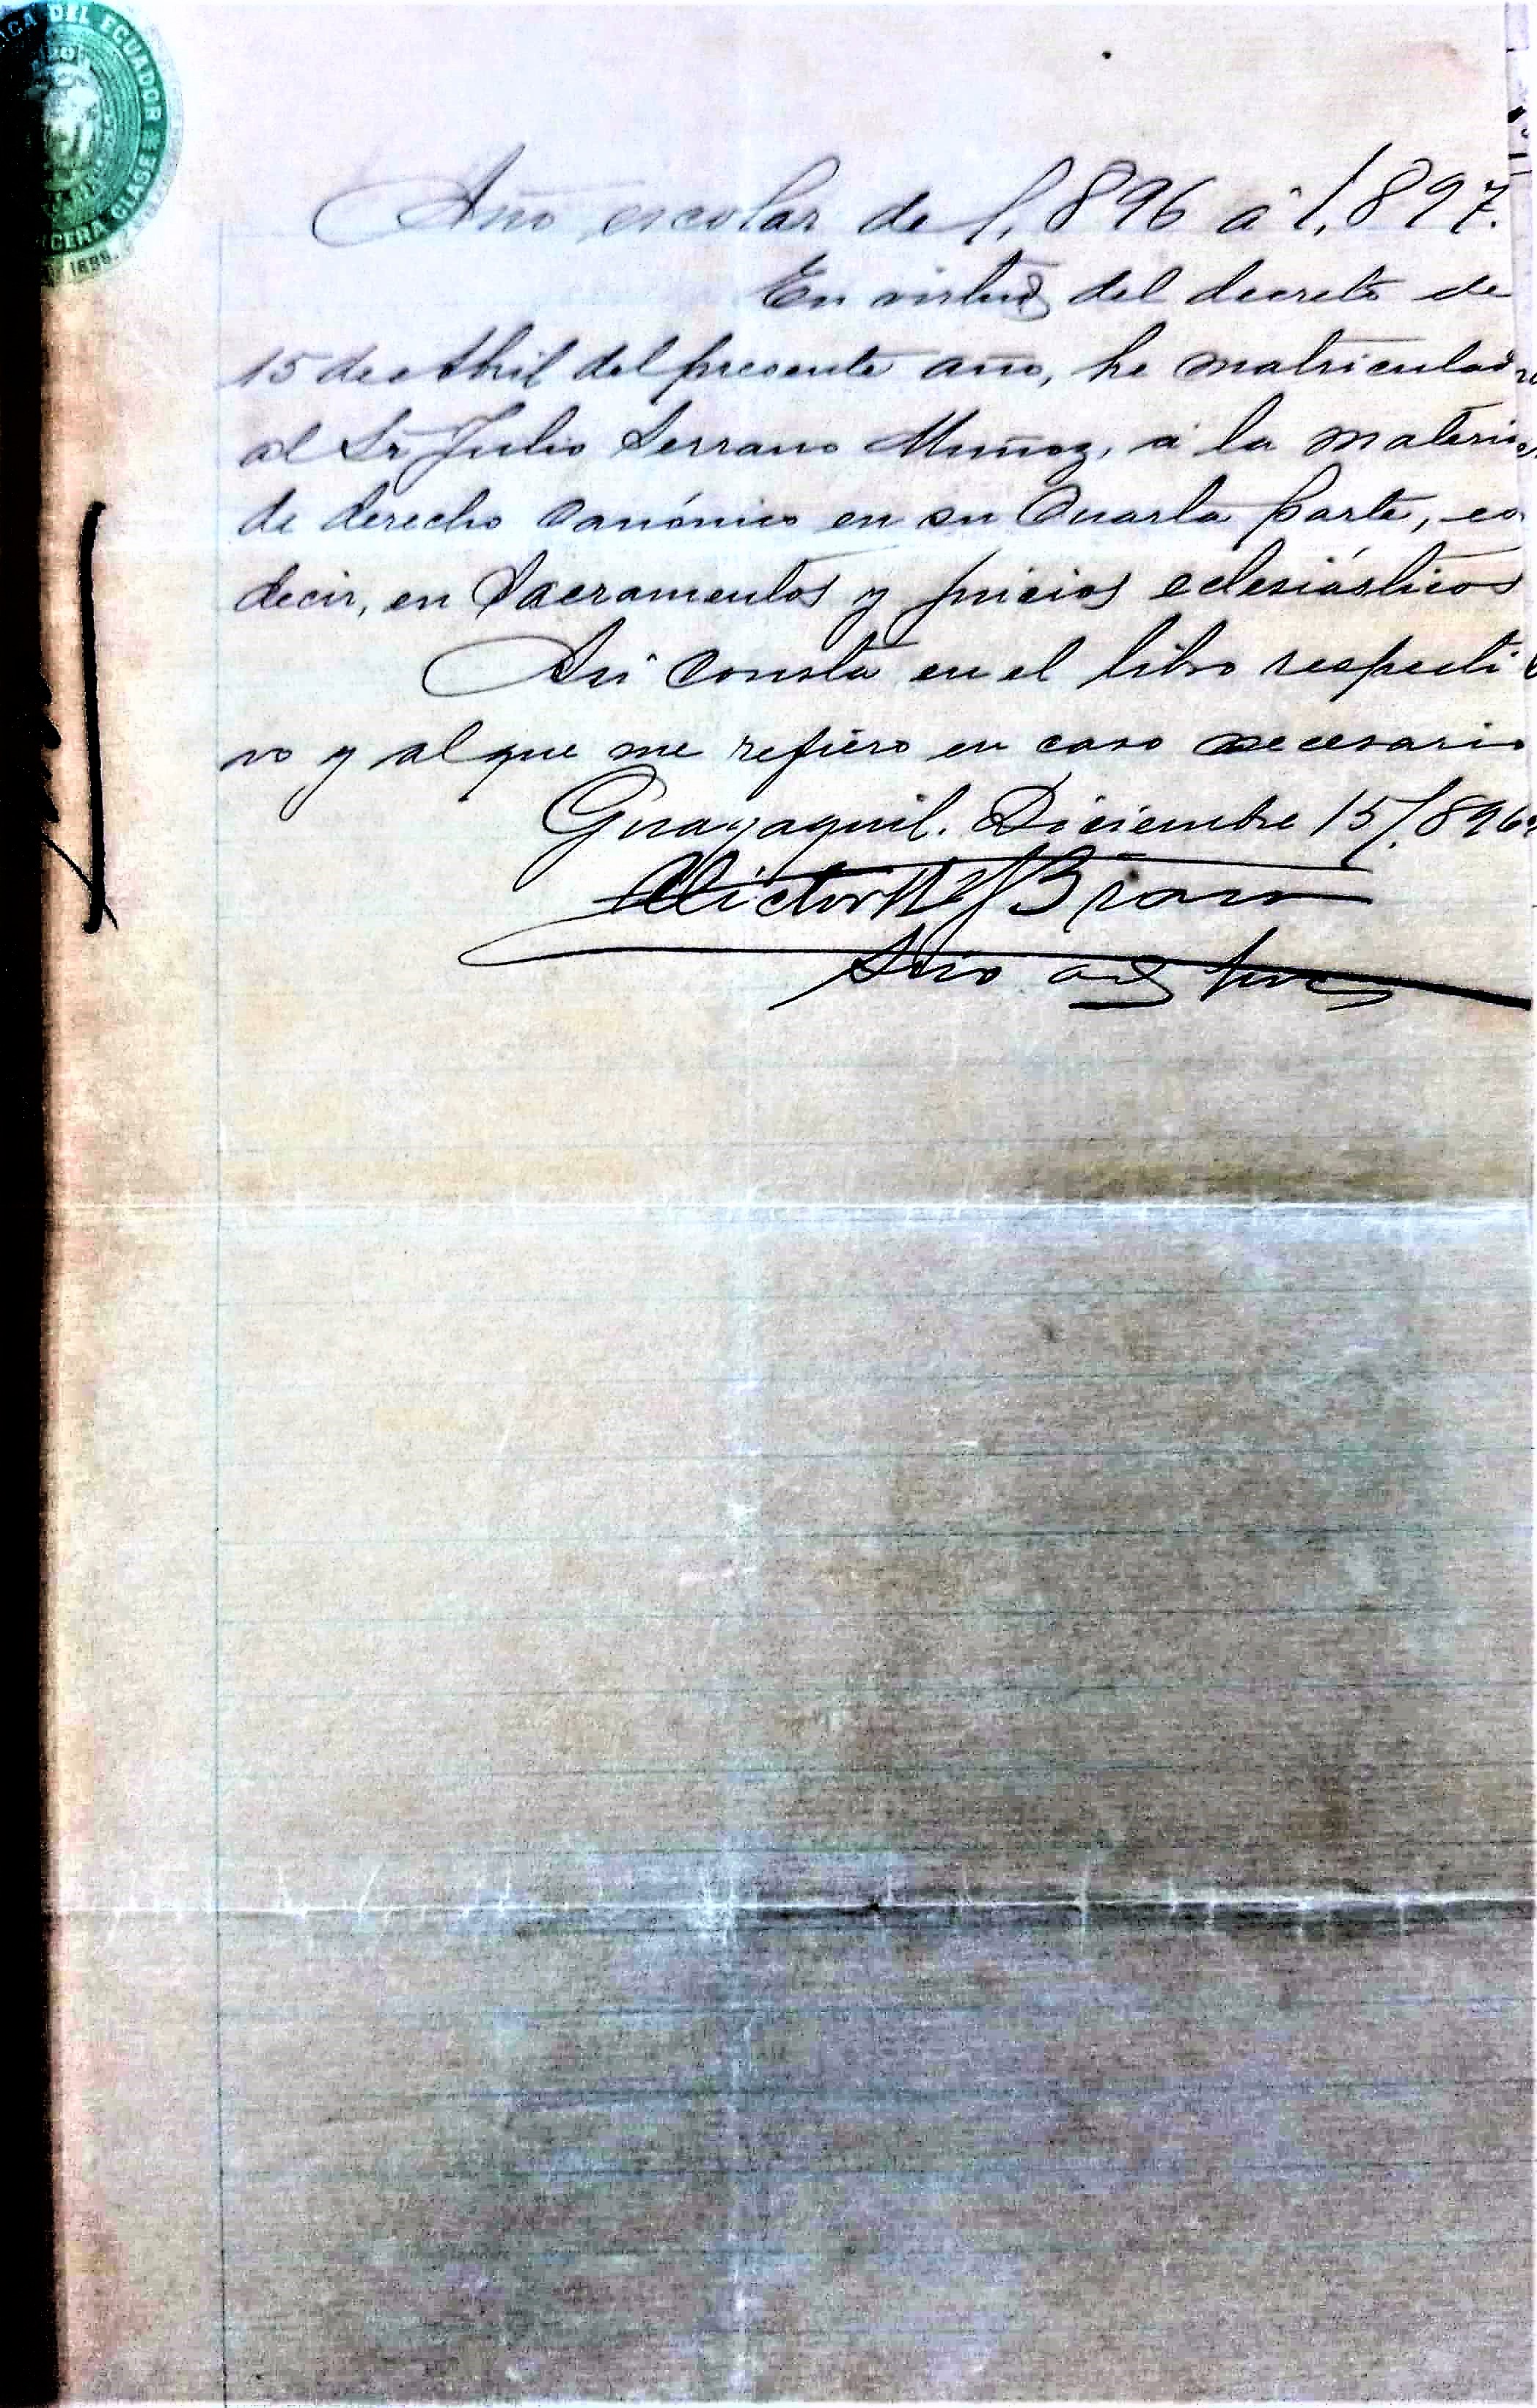 DEL ECUADOR
Año escolar de 1,896 á 1,897.
En virtud del decreto de
15 de Abril del presente año, he matriculado
al Sr. Julio Serrano Muñoz, á la materia
de derecho Canónico en su Cuarta parte, es
decir, en Sacramentos y juicios eclesiásticos
Asi consta en el libro respecti-
vo y al que me refiero en caso necesario
Guayaquil. Diciembre 15/.896.
Victor
Srio